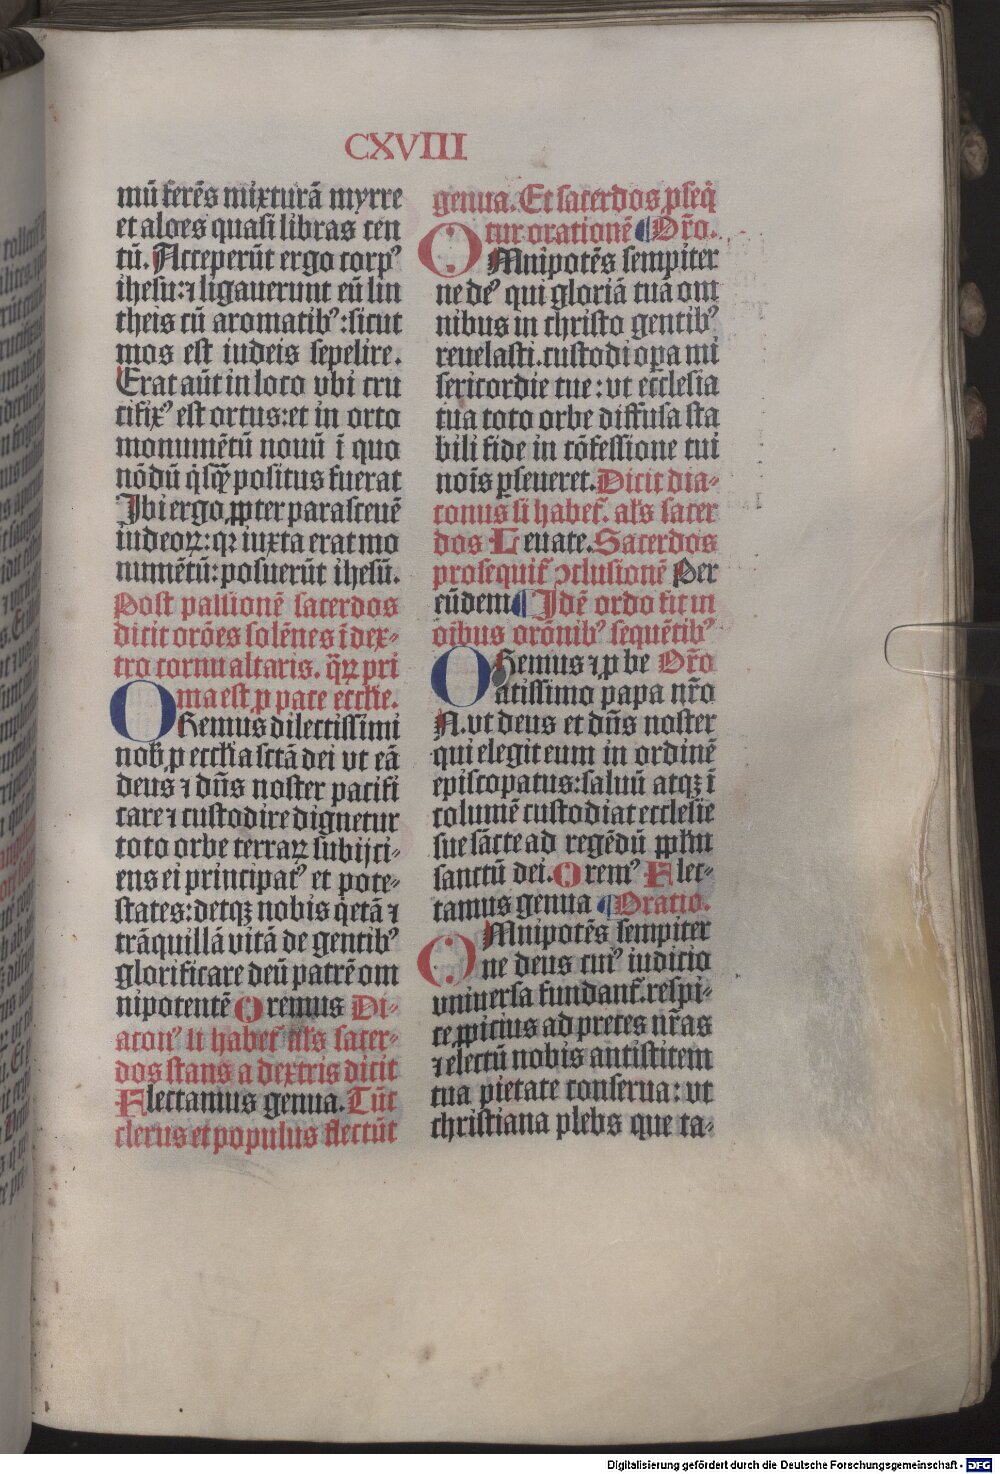 CXVIII
mū ferēs mixturā myrre
et aloes quasi libras cen
tū. Acceperūt ergo corpꝰ
ihesu: ⁊ ligauerunt eū lin
theis cū aromatibꝰ: sicut
mos est iudeis sepelire.
Erat aūt in loco vbi cru
cifixꝰ est ortus: et in orto
monumētū nouū ī quo
nōdū q̇sq̄ positus fuerat
Ibi ergo ꝓpter parasceuē
iudeoꝝ: qꝛ iuxta erat mo
numētū: posuerūt ihesū.
Post passionē sacerdos
dicit orōes solēnes ī dex-
tro cornu altaris. q̄ꝝ pri
ma est ꝓ pace eccl'ie.
ORemus dilectissimi
nob̄ ꝓ eccl'ia sctā dei vt eā
deus ⁊ dn̄s noster pacifi
care ⁊ custodire dignetur
toto orbe terraꝝ subijci-
ens ei principatꝰ et pote-
states: detqꝫ nobis q̇etā ⁊
trāquillā vitā de gentibꝰ
glorificare deū patrē om
nipotentē Oremus Di-
aconꝰ si habet᷑ al's sacer-
dos stans a dextris dicit
Flectamus genua. Tūc
clerus et populus flectūt
genua. Et sacerdos ꝓseq̇
tur orationē ¶ Or̄o.
OMnipotēs sempiter
ne deꝰ qui gloriā tuā om
nibus in christo gentibꝰ
reuelasti. custodi oꝑa mi
sericordie tue: vt ecclesia
tua toto orbe diffusa sta
bili fide in cōfessione tui
nois ꝑseueret. Dicit dia-
conus si habet᷑. al's sacer
dos Leuate. Sacerdos
prosequit᷑ ꝯclusionē Per
eūdem ¶ Idē ordo fit in
oibus orōnibꝰ sequētibꝰ
ORemus ⁊ ꝓ be Or̄o
atissimo papa nr̄o
N. vt deus et dn̄s noster
qui elegit eum in ordinē
episcopatus: saluū atqꝫ ī
columē custodiat ecclesie
sue sācte ad regēdū ppl'm
sanctū dei. Oremꝰ Flec-
tamus genua ¶ Oratio.
OMnipotēs sempiter
ne deus cuiꝰ iudicio
vniuersa fundant᷑. respi-
ce ꝓpicius ad preces nr̄as
⁊ electū nobis antistitem
tua pietate conserua: vt
christiana plebs que ta-
Digitalisierung gefördert durch die Deutsche Forschungsgemeinschaft - DFG